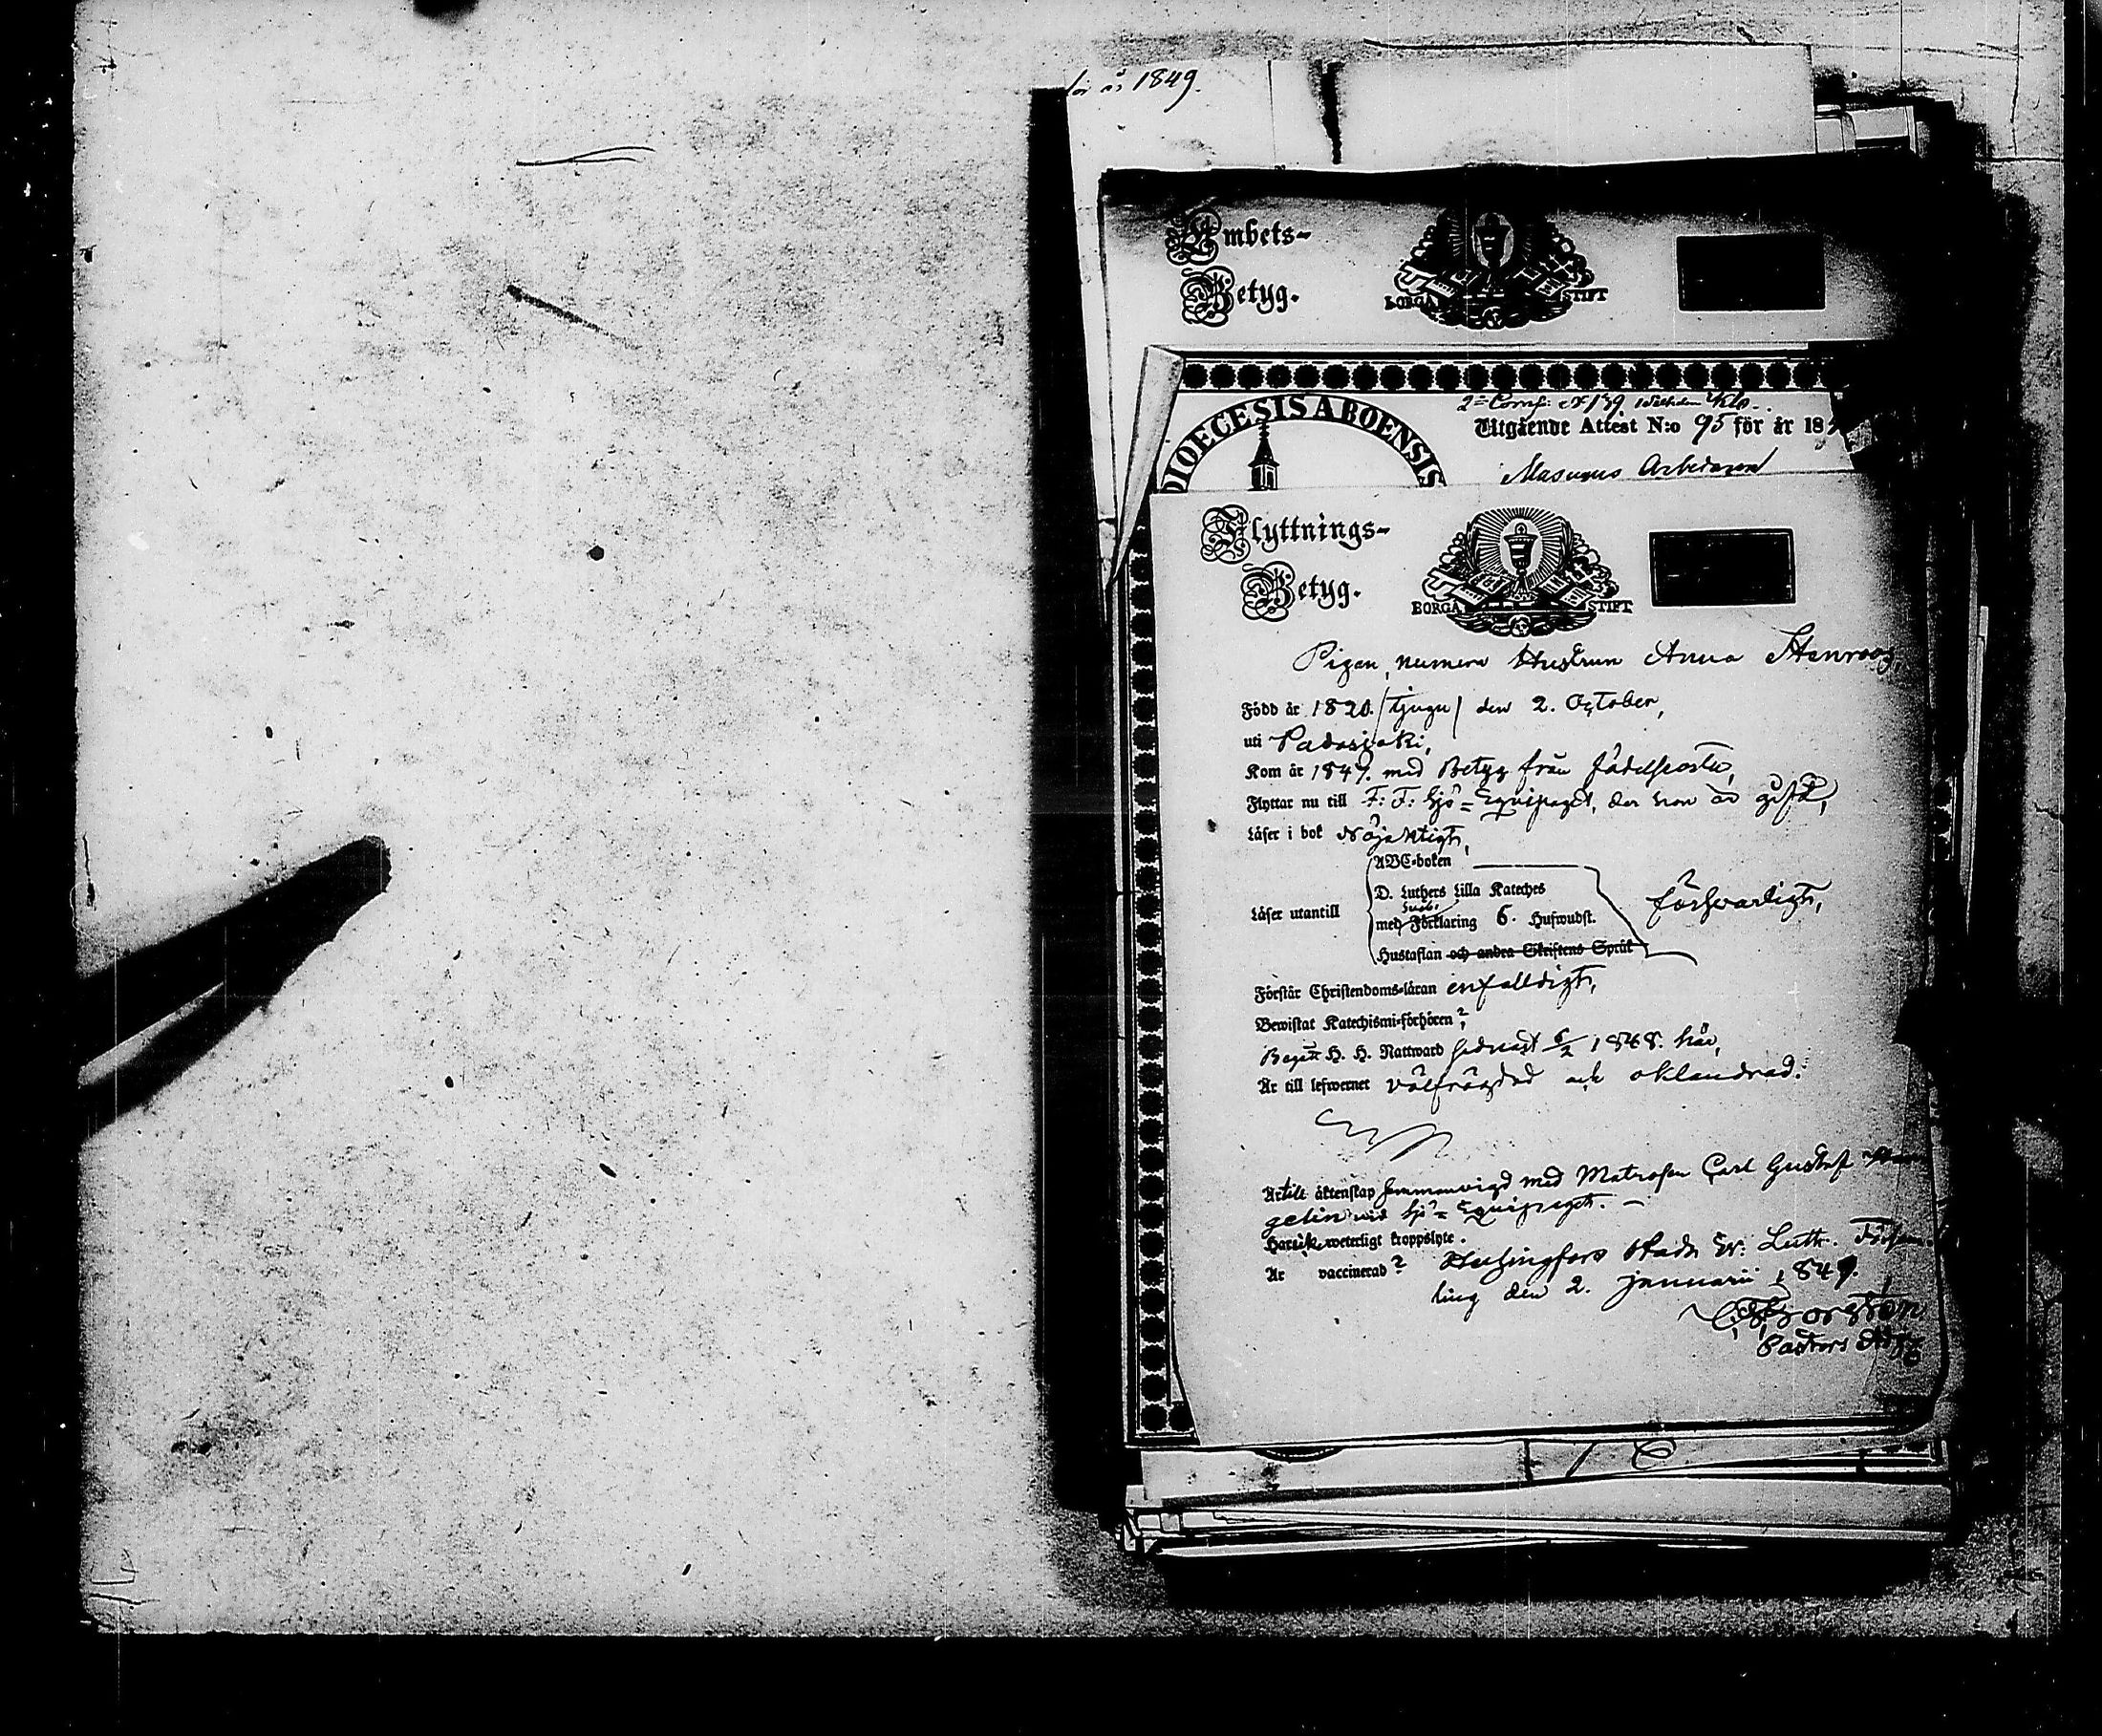 för år 1849.
Embets-
Betyg.
BORGÅ STIFT
DIOECESIS ABOENSIS
Utgående Attest N:o 95 för år 18
Flyttnings-
Betyg.
BORGÅ STIFT
Pigan, numera Hustrun Anna Stenroos,
Född år 1820. /tjugu/ den 2. October,
uti Padasjoki,
Kom år 1847. med Betyg från födelseorten,
Flyttar nu till F: F: Sjö=Equipaget, der hon är gift,
Läser i bok Nöjaktigt,
ABC-boken
D. Luthers Lilla Kateches
Läser utantill försvarligt,
med Förklaring 6. Hufwudst.
Hustaflan och andra Skriftens Språk
Förstår Christendoms-läran enfalldigt,
Bewistat Katechismi-förhören?,
Begått H. H. Nattward sednast 6/2 1848. här,
Är till lefwernet välfrägdad och oklandrad.
Är till äktenskap sammanvigd med Matrosen Carl Gustaf
gelin vid Sjö=Equipaget. –
Har ick weterligt kroppslyte.
Är vaccinerad? Helsingfors stads Ev: Luth. Försam-
ling den 2. januarii 1849.
Pastors Adj.